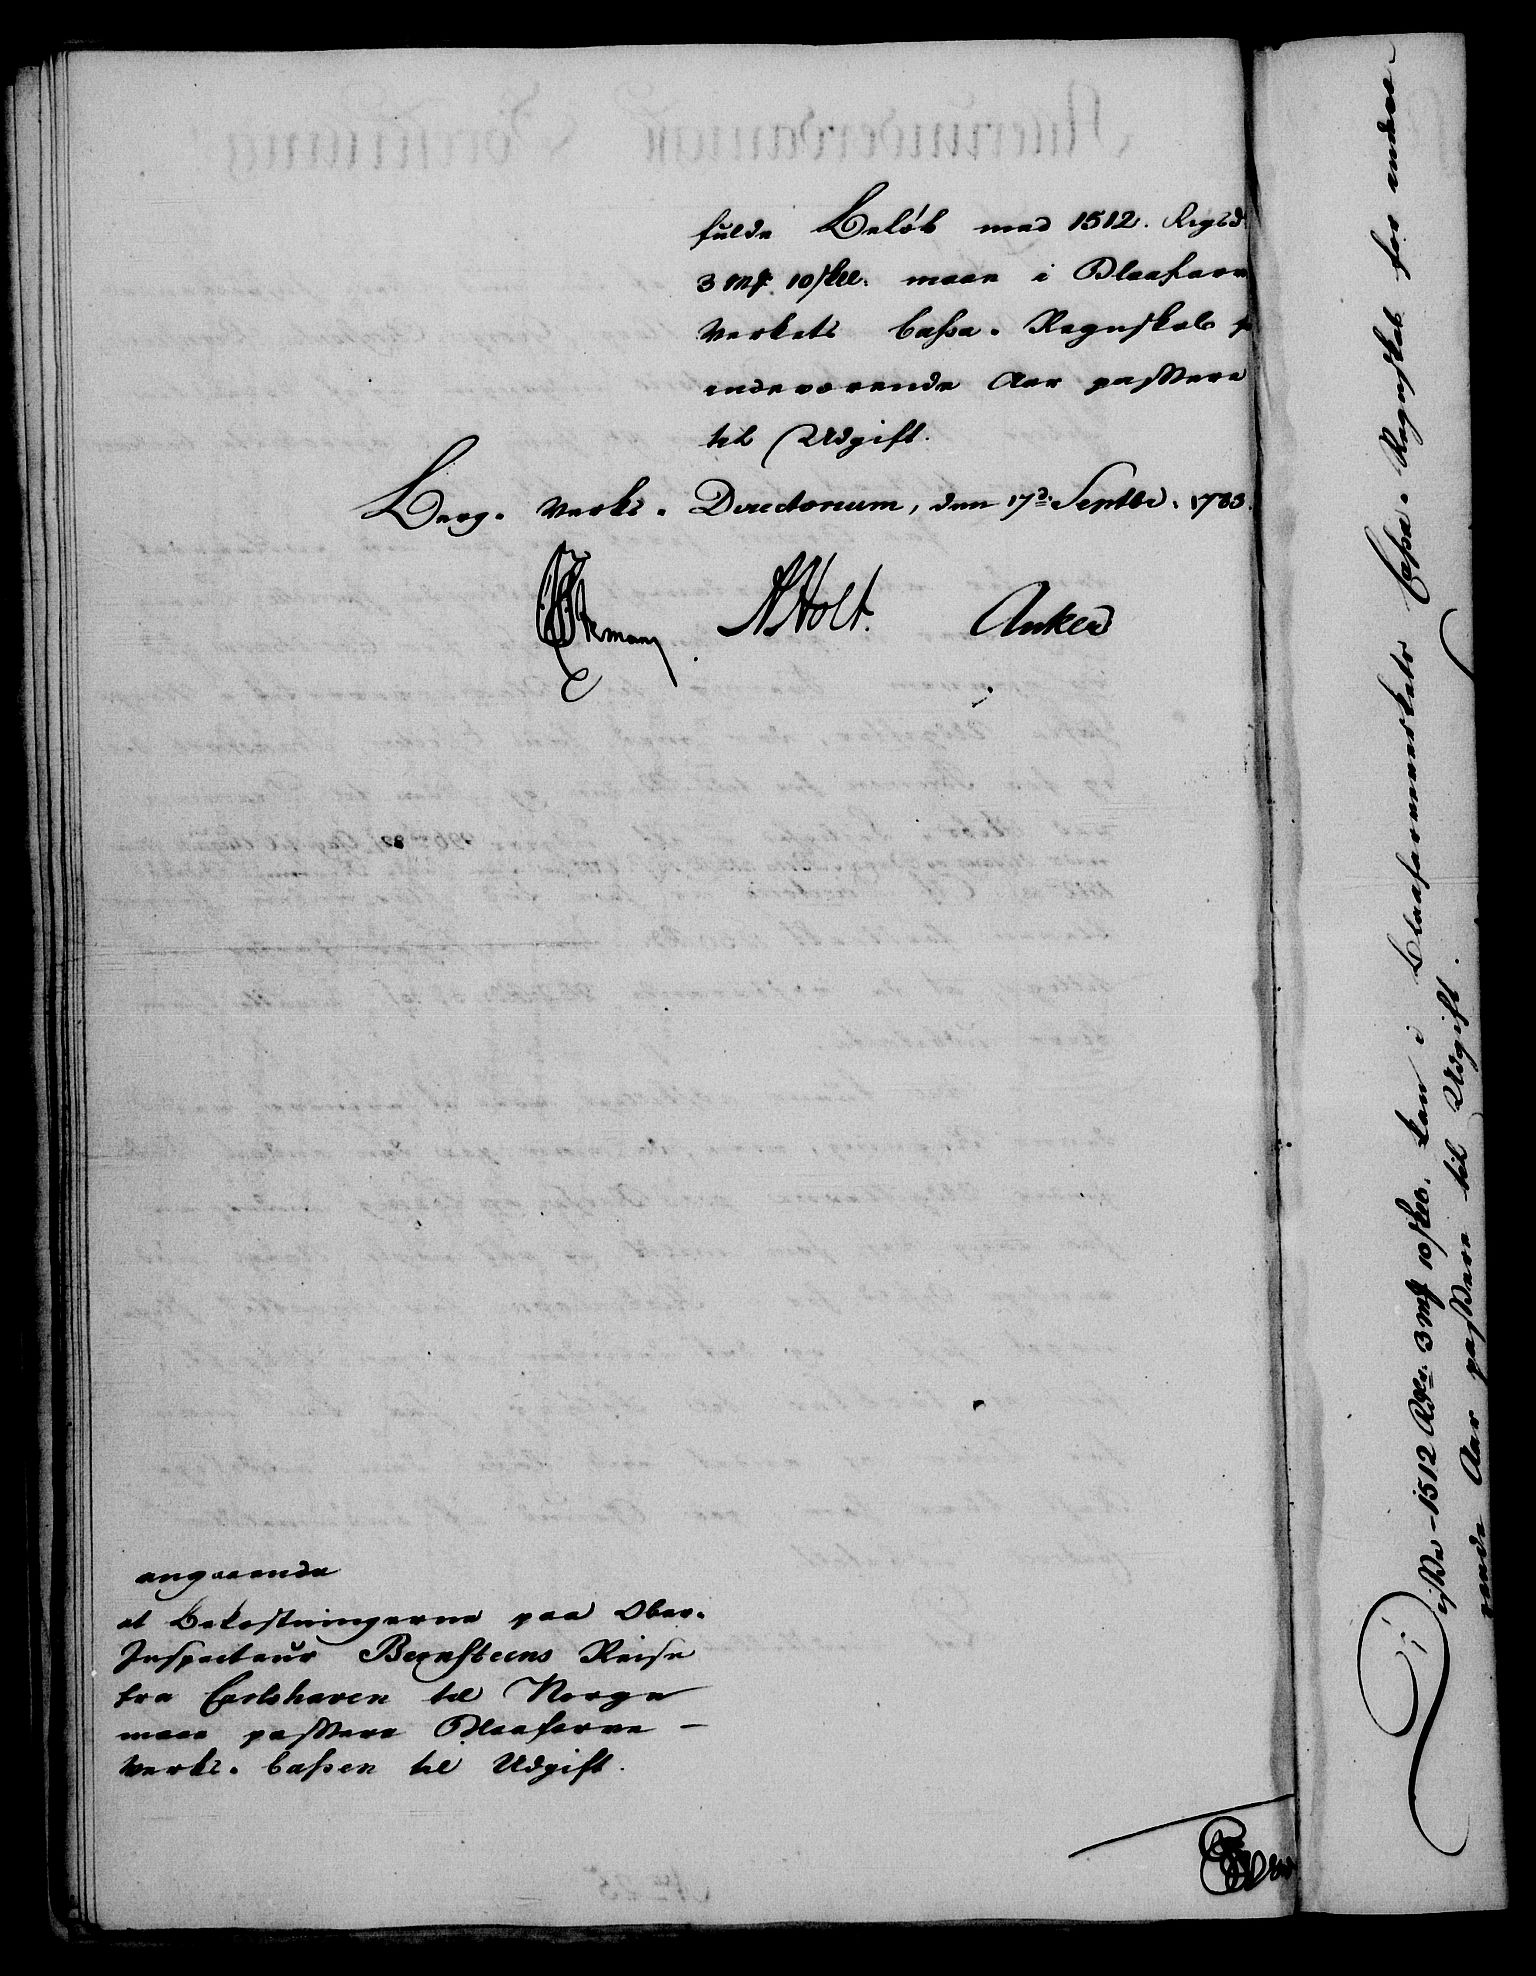 fulde Beløb med 1512. Rigsd.
3 mk 10 skll. maae i Blaafarve
Verkets Cassa-Regnskab
indeværende Aar passere
til Udgift.
Berg-Verks-Directorium, den 17de Septbr. 1783.
AHolt. Anker
angaaende
at Bekostningerne paa Ober-
Inspecteur Bernsteens Reise
fra Carlshaven til Norge
maae passere Blaafarve-
Verks-Cassen til Udgift.
Disse 1512 Rdr. 3 mk 10 skll. kan i Blaafarveverkets Cassa-Regnskab for indevæ-
rende Aar passere til Udgift.